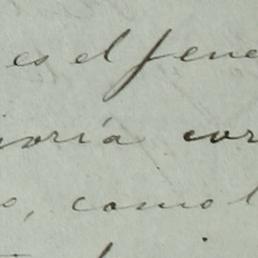 es el fene
ioría cor
o, como l